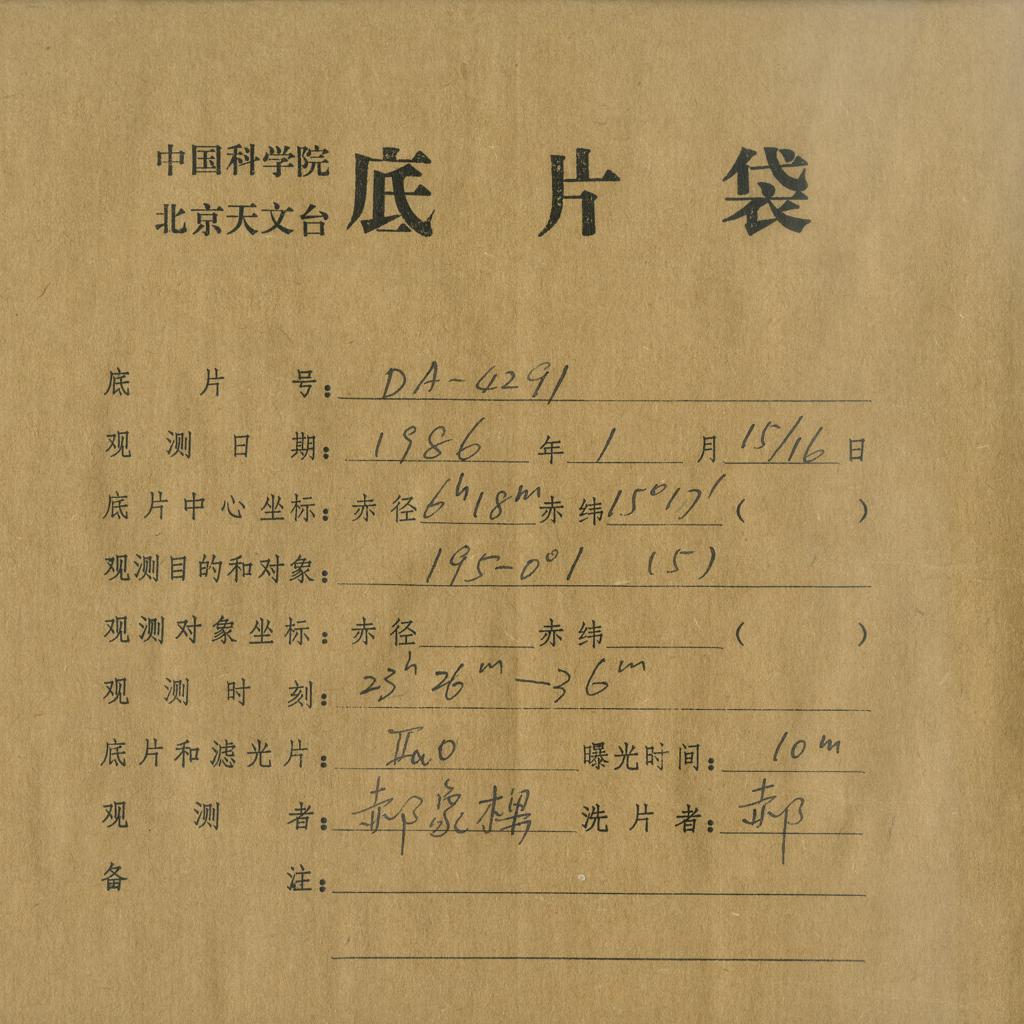 中国科学院
北京天文台
底片袋
底片号：DA-4291
观测日期：1986年1月15/16日
底片中心坐标：赤径6ʰ18ᵐ赤纬15°17′（ ）
观测目的和对象：195-0°1 (5)
观测对象坐标：赤径 赤纬 （ ）
观测时刻：23ʰ26ᵐ—36ᵐ
底片和滤光片：IIaO 曝光时间：10ᵐ
观测者：郝象樑 洗片者：郝
备注：